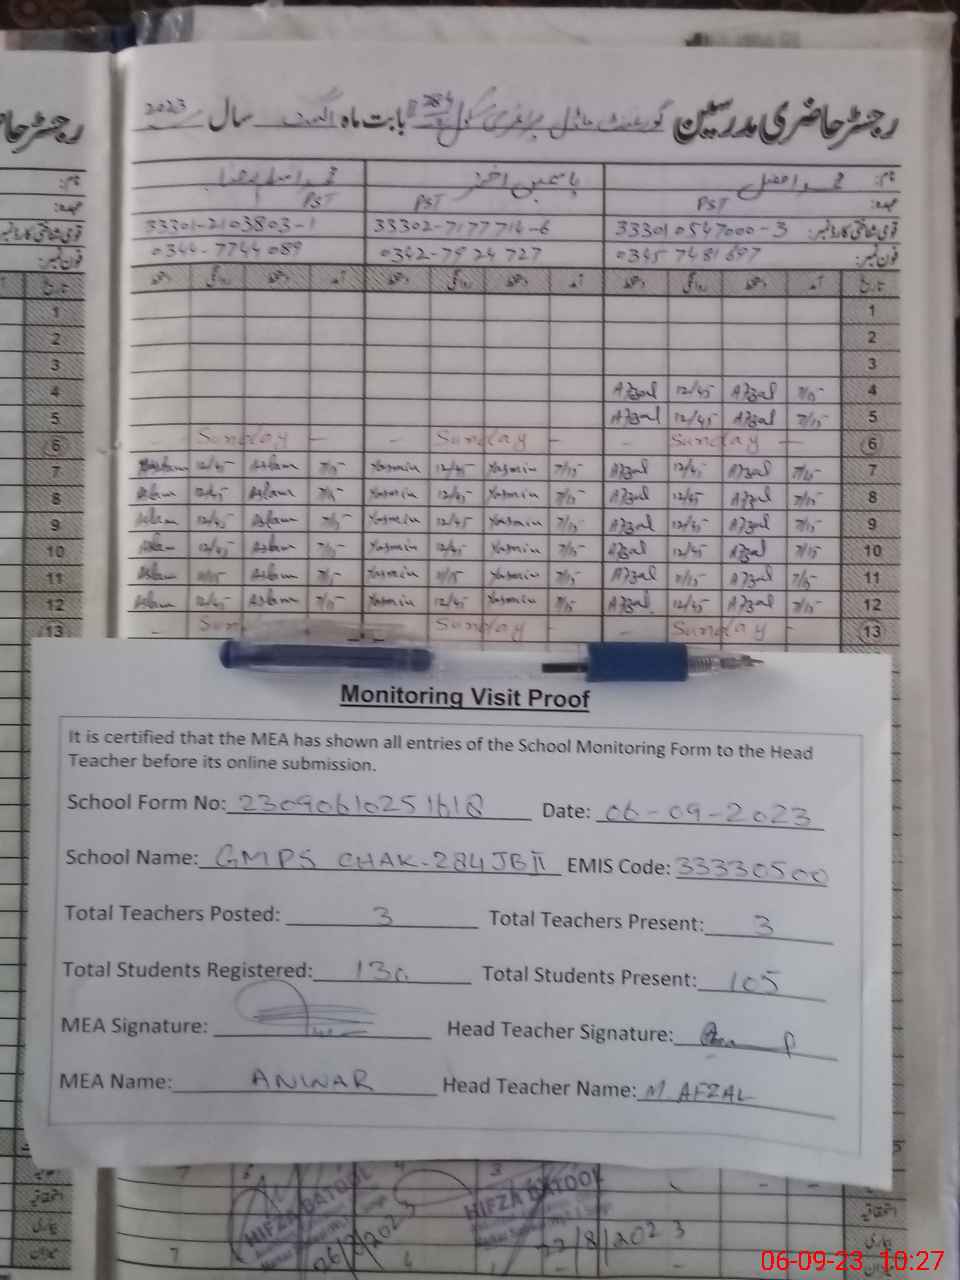 رجسٹر حاضری مدرسین گورنمنٹ ماڈل پرائمری سکول 284 بابت ماہ اگست سال 2023
نام: محمد افضل یاسمین اختر محمد اسلم
عہدہ: PST PST PST
قومی شناختی کارڈ نمبر: 333010547000-3 33302-7177714-6 33301-2103803-1
فون نمبر: 0345 7481697 0342-7924727 0344-7744089
تاریخ آمد دستخط روانگی دستخط آمد دستخط روانگی دستخط آمد دستخط روانگی دستخط
1 1
2 2
3 3
Afzal 12/45 Afzal 7/15 4
Afzal 12/45 Afzal 7/15 5
Sunday Sunday Sunday 6
Aslam 12/45 Aslam 7/15 Yasmin 12/45 Yasmin 7/15 Afzal 12/45 Afzal 7/15 7
Aslam 12/45 Aslam 7/15 Yasmin 12/45 Yasmin 7/15 Afzal 12/45 Afzal 7/15 8
Aslam 12/45 Aslam 7/15 Yasmin 12/45 Yasmin 7/15 Afzal 12/45 Afzal 7/15 9
Aslam 12/45 Aslam 7/15 Yasmin 12/45 Yasmin 7/15 Afzal 12/45 Afzal 7/15 10
Aslam 11/15 Aslam 7/15 Yasmin 11/15 Yasmin 7/15 Afzal 11/15 Afzal 7/15 11
Aslam 12/45 Aslam 7/15 Yasmin 12/45 Yasmin 7/15 Afzal 12/45 Afzal 7/15 12
Sunday Sunday 13
Monitoring Visit Proof
It is certified that the MEA has shown all entries of the School Monitoring Form to the Head
Teacher before its online submission.
School Form No: 230906102516IQ Date: 06-09-2023
School Name: GMPS CHAK-284JBII EMIS Code: 33330500
Total Teachers Posted: 3 Total Teachers Present: 3
Total Students Registered: 130 Total Students Present: 105
MEA Signature: Head Teacher Signature:
MEA Name: ANWAR Head Teacher Name: M. AFZAL
HIFZA BATOOL HIFZA BATOOL
22/8/2023
06-09-23 10:27